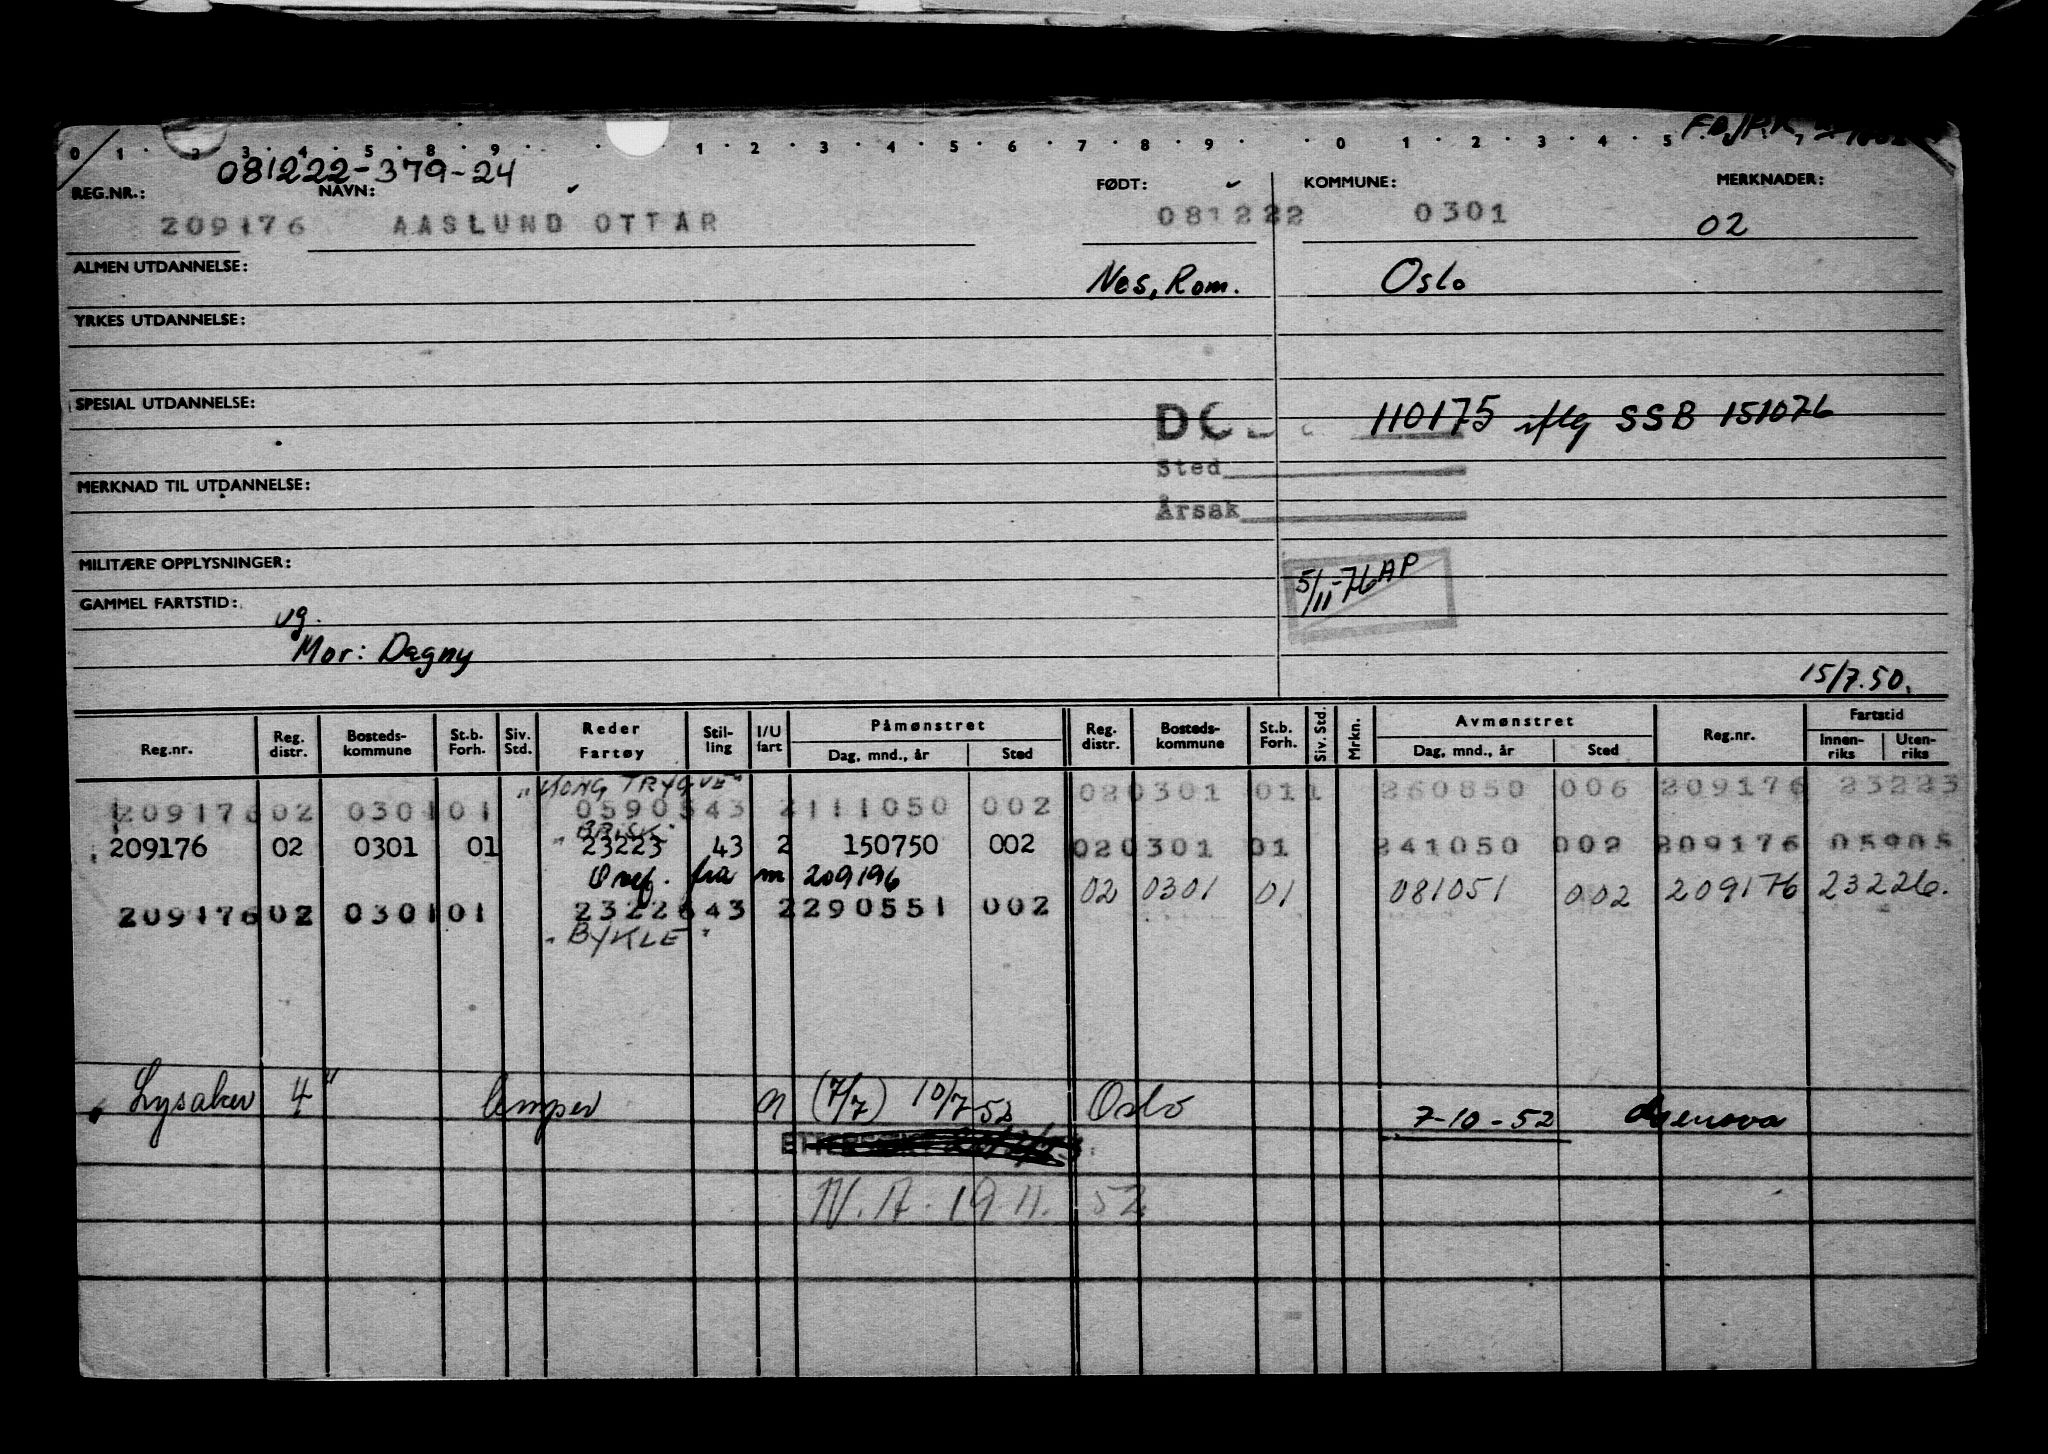 0 1 2 3 4 5 8 9 1 2 3 4 5 6 7 8 9 0 1 2 3 4 5 7
081222-379-24
REG.NR.: NAVN: FØDT: KOMMUNE: MERKNADER:
209176 AASLUND OTTAR 081222 0301 02
ALMEN UTDANNELSE: Nes, Rom. Oslo
YRKES UTDANNELSE:
SPESIAL UTDANNELSE: 110175 iflg SSB 151076
Sted
MERKNAD TIL UTDANNELSE:
Årsak
MILITÆRE OPPLYSNINGER: 5/11-76 AP
GAMMEL FARTSTID:
vg.
Mor: Dagny
15/7.50.
Reg.nr. Reg. distr. Bosteds-kommune St.b. Forh. Siv. Std. Reder Fartøy Stil-ling I/U fart Påmønstret Dag, mnd., år Sted Reg. distr. Bosteds-kommune St.b. Forh. Siv. Std. Mrkn. Avmønstret Dag, mnd., år Sted Reg.nr. Fartstid Innen-riks Uten-riks
TRYGVE"
209176 02 0301 01 05905 43 2 111050 002 02 0301 01 1 260850 006 209176 23223
"BRISK"
209176 02 0301 01 23223 43 2 150750 002 02 0301 01 241050 002 209176 05905
fra m 209196
02 0301 01 081051 002 209176 23226.
209176 02 0301 01 23226 43 2 290551 002
"BYKLE"
Lysaker 4" (7/7) 10/7-52 Oslo 7-10-52 Genova
N.A. 19.11.52